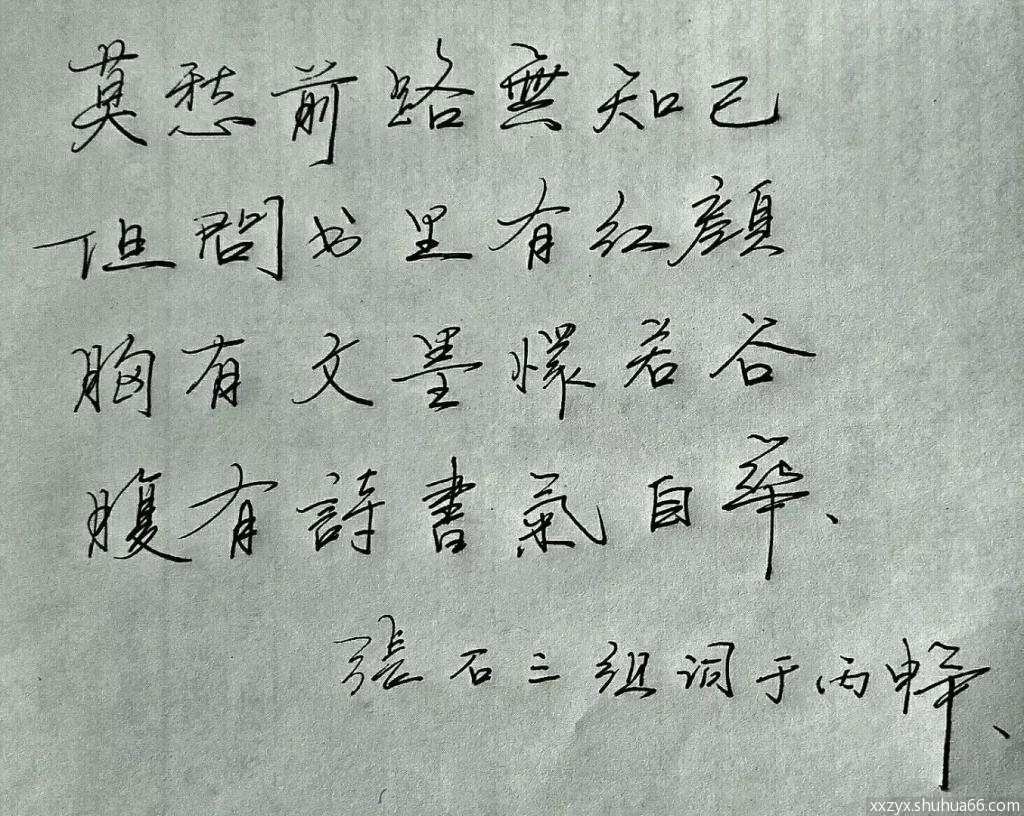 莫愁前路無知己
但問书里有红顔
胸有文墨懷若谷
腹有詩書氣自华、
張石三组词于丙申年、
xxzyx.shuhua66.com